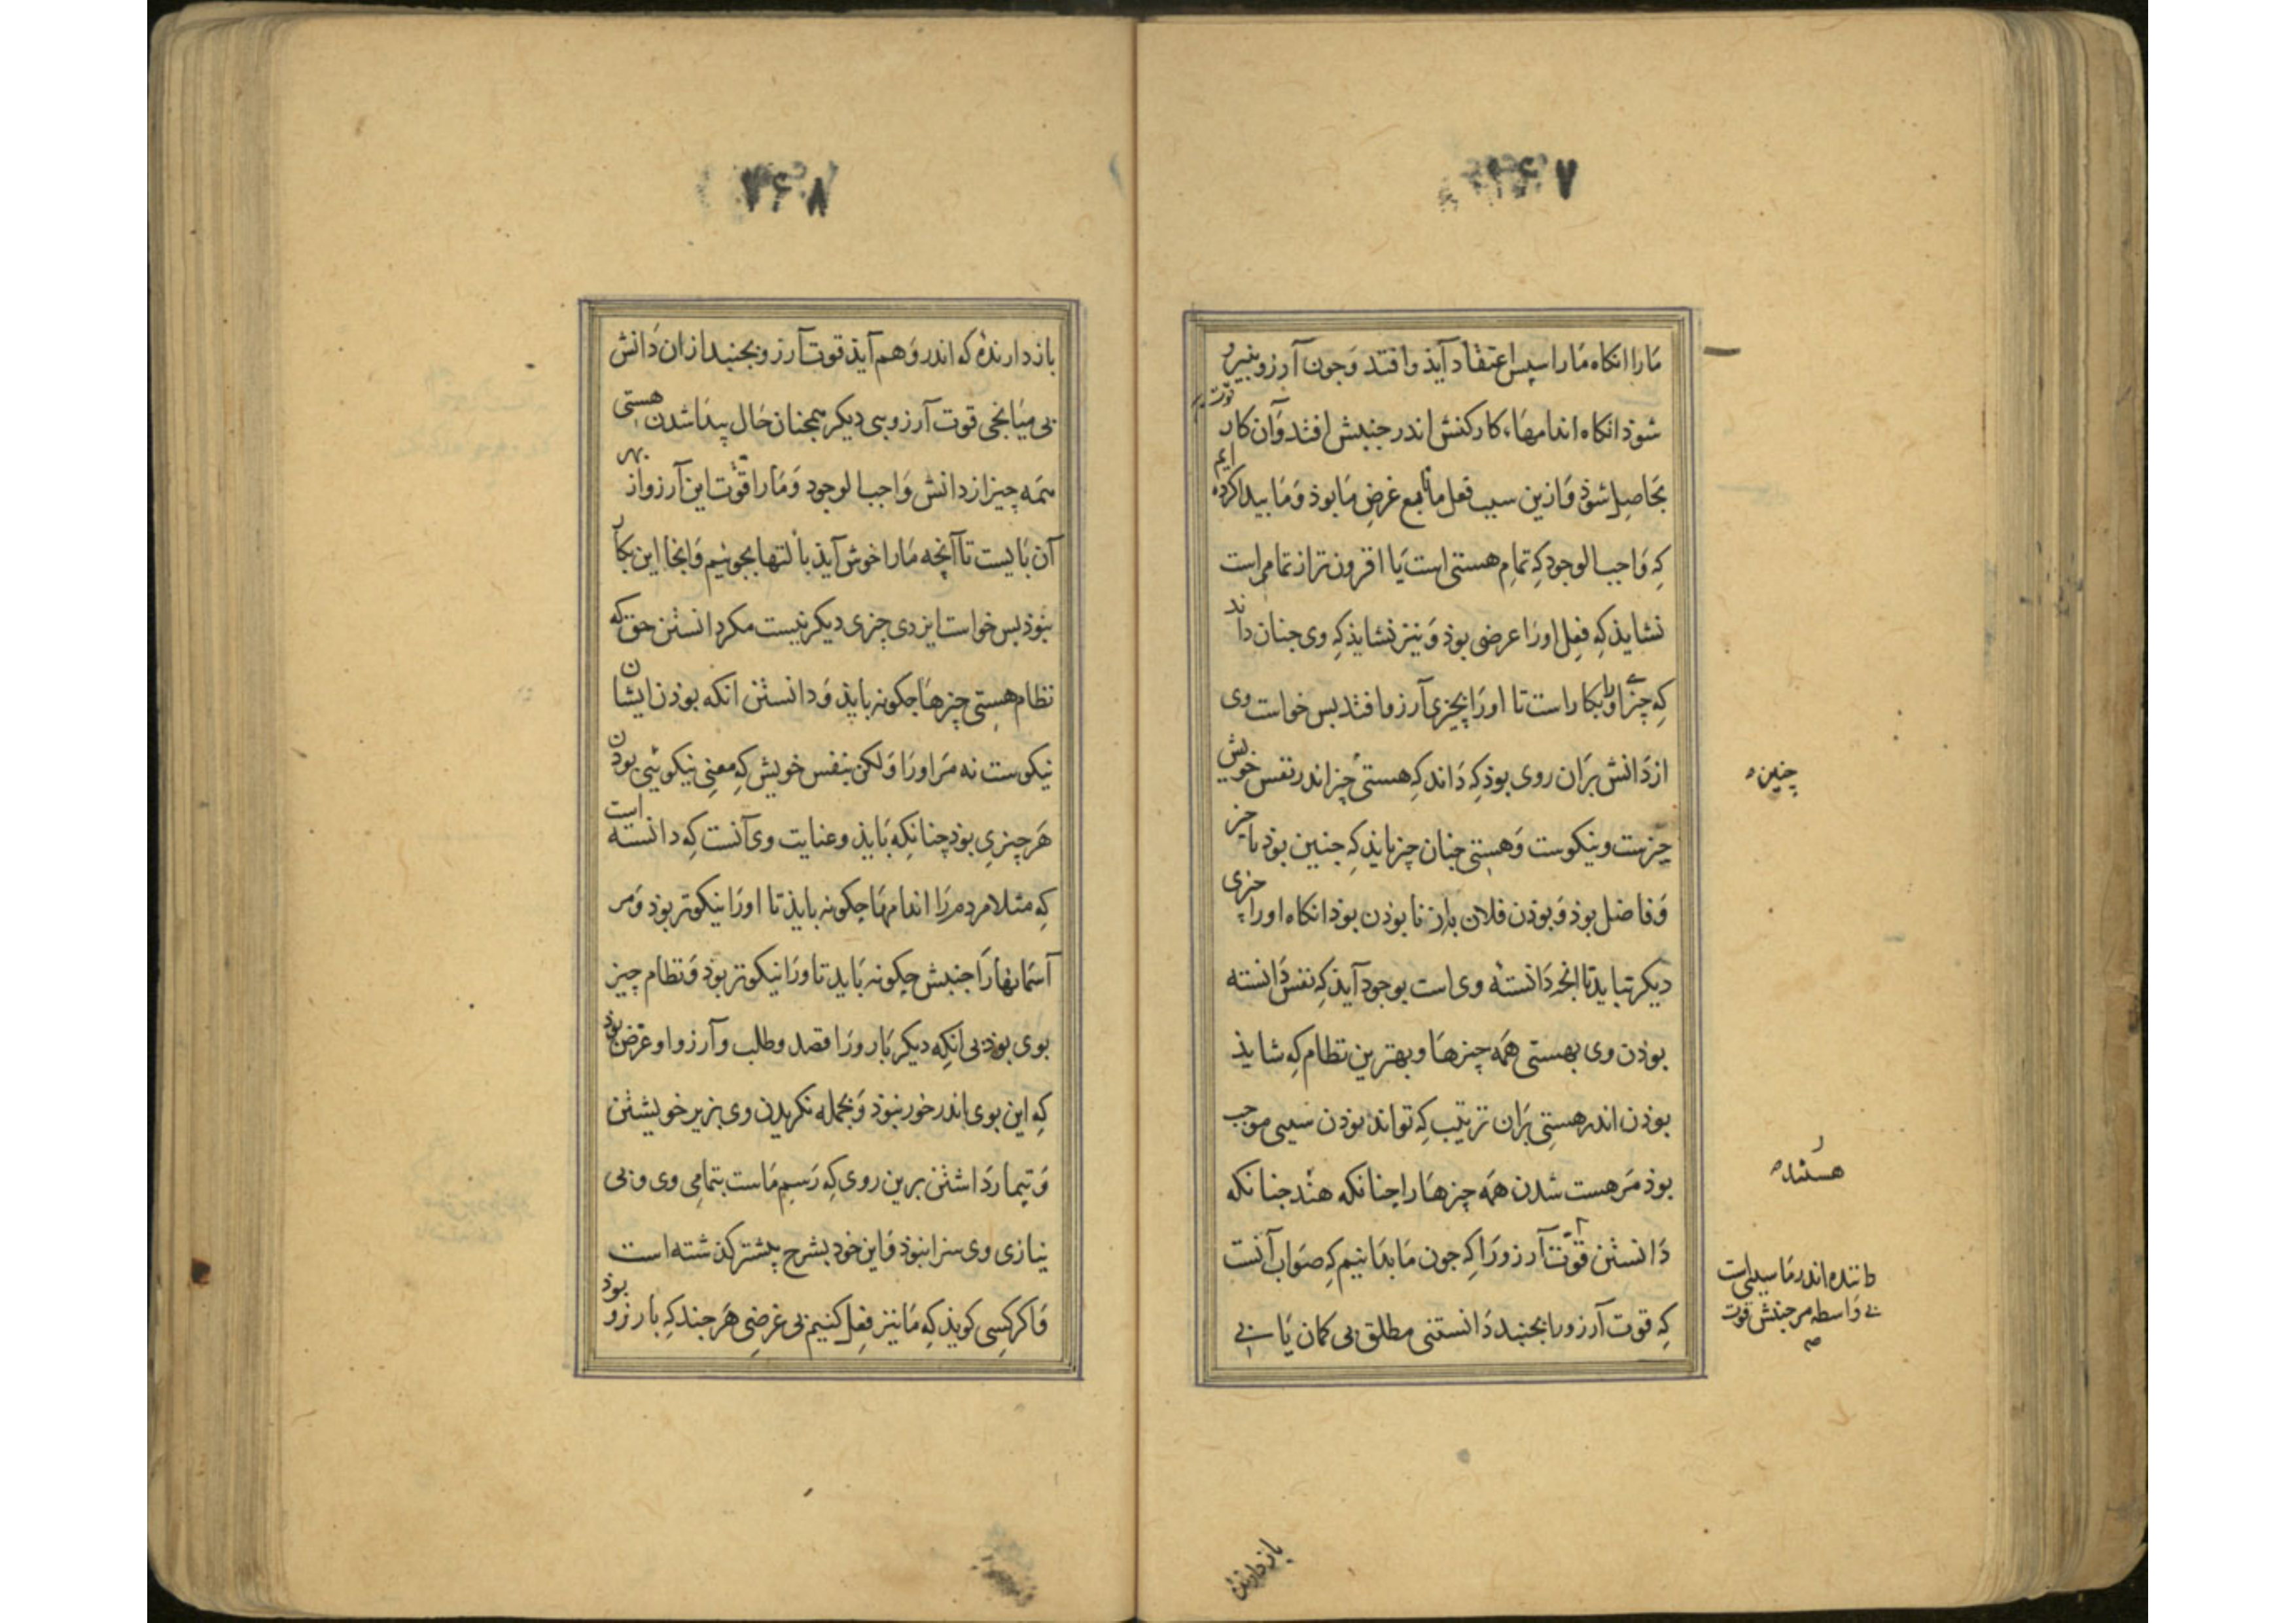 ۲۶۷
مارا انکاه مارا سپس اعتقاد آیذ وافتد وجون آرزو بنیرو
قوت
شوذ انکاه اندامهاء کارکنش اندر جنبش افتد وآن کار
بحاصل شوذ وازین سبب فعل ما تابع غرض ما بوذ وما پیدا کرده ایم
که واجب الوجود که تمام هستی است یا افزون تر از تمامی است
نشایذ که فعل اورا غرضی بوذ و نیز نشایذ که وی جنان داند
که چیزی اورا بکار است تا اورا بچیزی آرزو افتد بس خواست وی
از دانش بران روی بوذ که داند که هستی چیز اندر نفس خویش
چیزست ونیکوست وهستی چنان چیز بایذ که جنین بوذ تا چیز
وفاضل بوذ و بوذن فلان به از نا بوذن بوذ انکاه اورا چیزی
دیکر نباید تا انجه دانسته وی است بوجود آیذ که نفس دانسته
بوذن وی بهستی همه چیزها وبهترین نظام که شایذ
بوذن اندر هستی بران ترتیب که تواند بوذن سببی موجب
بوذ مر هست شدن همه چیزها را چنانکه هند جنانکه
دانستن قوت آرزو را که جون ما بدانیم که صواب آنست
که قوت آرزو را بجنبد دانستنی مطلق بی کمان یا بی
چنین
هستند
داننده اندر ما سببی است
بی واسطه مر جنبش قوت
بازدارنده
۲۶۸
بازدارنده که اندر وهم آیذ قوت آرزو بجنبد ازان دانش
بی میانجی قوت آرزویی دیکر همجنان حال پیدا شدن هستی
همه چیز از دانش واجب الوجود ومارا قوت این آرزو از بهر
آن بایست تا آنچه مارا خوش آیذ بآلتها بجوئیم وانجا این بکار
نبوذ بس خواست ایزدی چیزی دیکر نیست مکر دانستن حق که
نظام هستی چیزها جکونه بایذ ودانستن انکه بوذن ایشان
نیکوست نه مر اورا ولکن بنفس خویش که معنی نیکویی بوذن
هر چیزی بوذ چنانکه بایذ وعنایت وی آنست که دانسته است
که مثلا مردم را اندامها جکونه بایذ تا اورا نیکوتر بوذ ومر
آسمانها را جنبش جکونه باید تا ورا نیکوتر بوذ ونظام چیز
بوی بوذ بی آنکه دیکر بار ورا قصد وطلب وآرزو وغرض بوذ
که این بوی اندر خور نبوذ وبجمله نکریدن وی بزیر خویشتن
وتیمار داشتن برین روی که رسم ماست بتمامی وی وبی
نیازی وی سزا نبوذ واین خود بشرح پیشتر کذشته است
واکر کسی کویذ که ما نیز فعل کنیم بی غرضی هرجند که بارزو بوذ